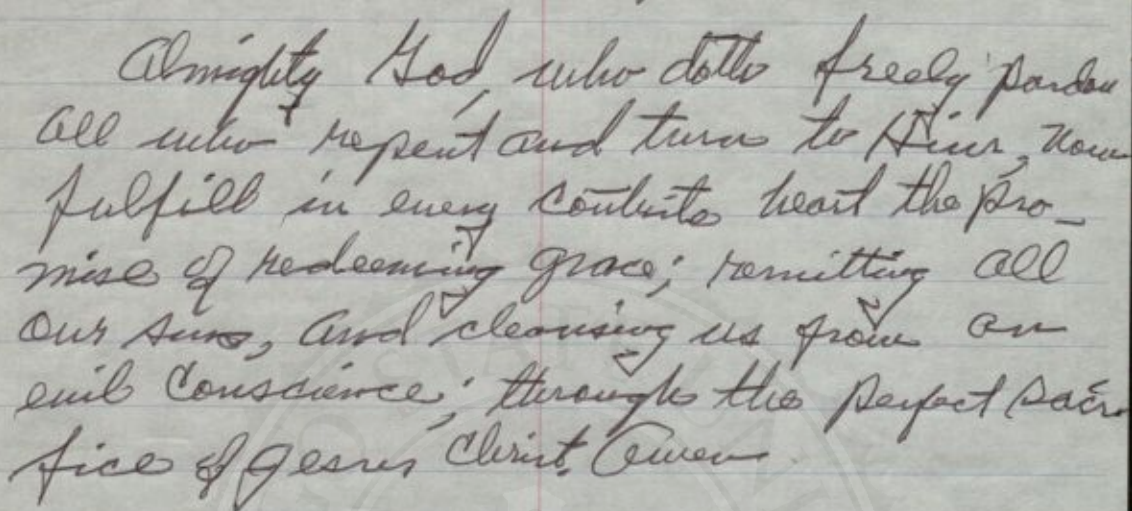 Almighty God, who doth freely pardon
all who repent and turn to Him, now
fulfill in every contrite heart the pro-
mise of redeeming grace; remitting all
our sins, and cleansing us from an
evil conscience; through the perfect sacri
fice of Jesus Christ. Amen